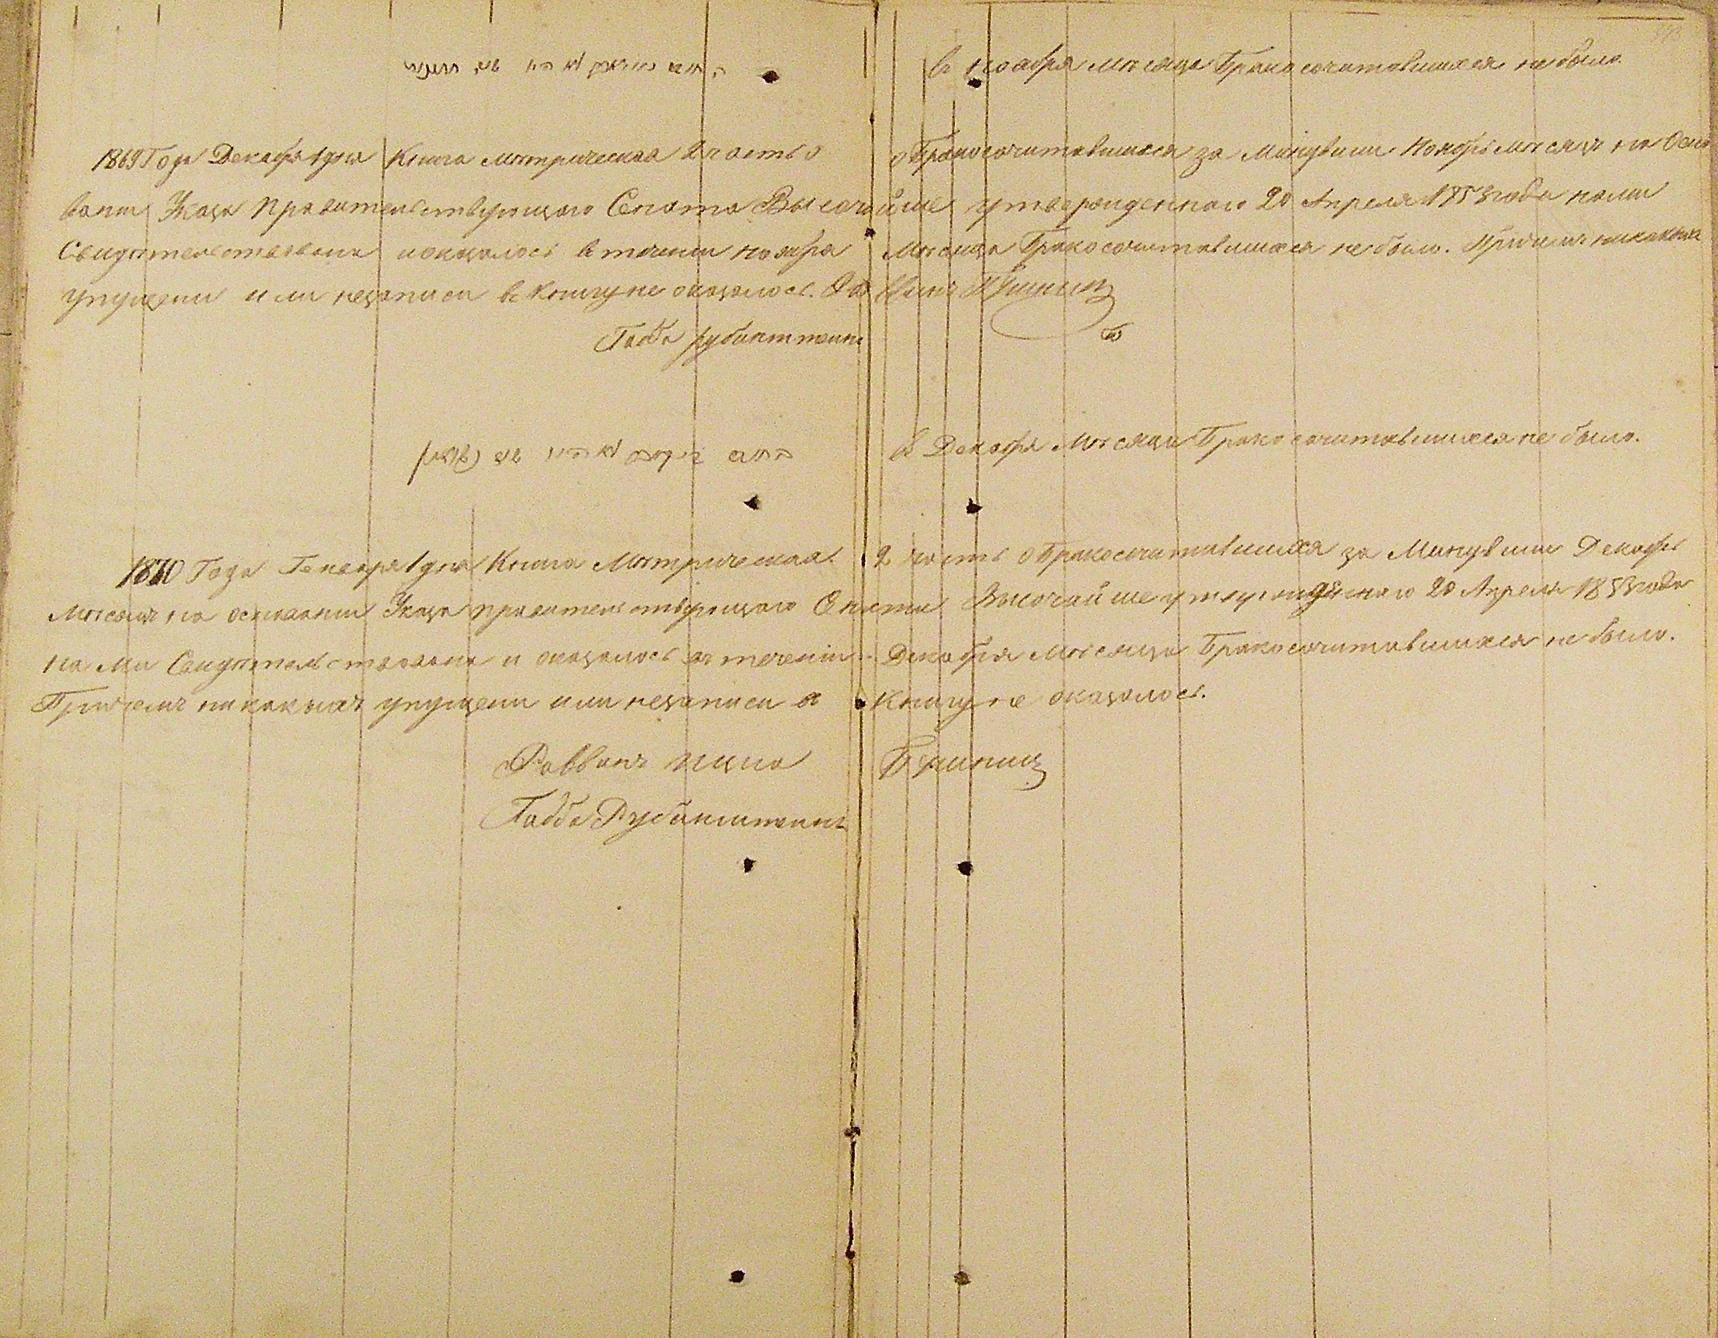 в ноября месяца Бракосочитавшихся не было
1869 Года Декабря 1 дня Книга Метрическая 2 часть о Бракосочитавшихся за Минувши Ноябрь месяцъ на Осно
вании Указа Правительствующаго Сената Высочайше утвержденнаго 20 Апреля 1853 года нами
Свидетельствована и оказалось в течении ноября Месяца Бракосочитавшихся не было. Причемъ никакихъ
упущени или незаписи в книгу не оказалось.
Габба Рубинштеинъ
לא היו
в Декабря Месяца Бракосочитавшихся не было.
1870 Года Генваря 1 дня Книга Метрическая 2 часть о Бракосочитавшихся за Минувши Декабрь
Месяцъ на основании Указа Правительствующаго Сената Высочайше утвержденнаго 20 Апреля 1853 года
нами Свидетельствована и оказалось в течении Декабря месяца Бракосочитавшихся не было.
Причемъ никакихъ упущени или незаписи в Книгу не оказалось.
Раввинъ
Габба Рубинштеинъ